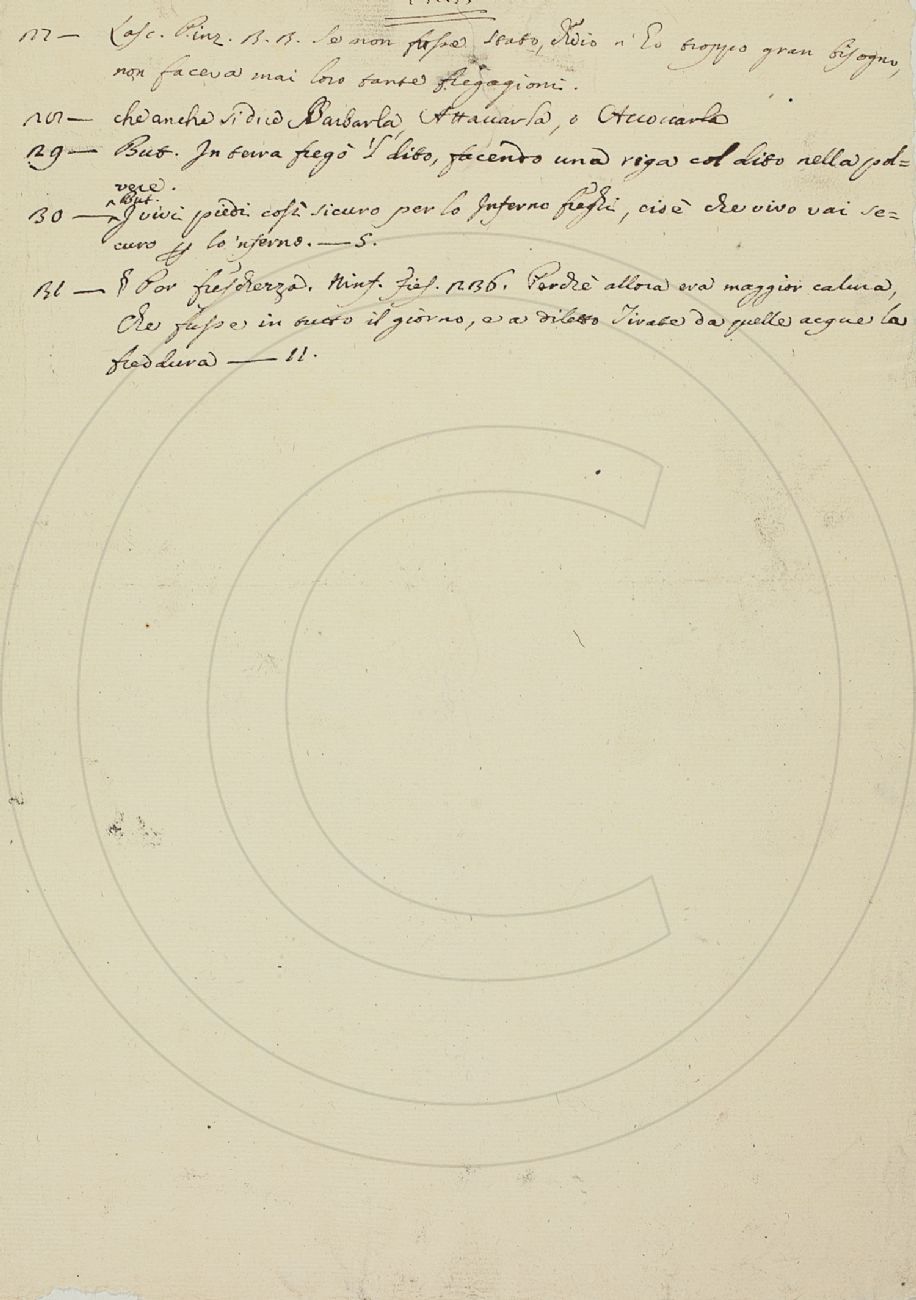 Lasc. Pinz. 3. 3. Se non fosse stato, ch'io n'ho troppo gran bisogno,
non faceva mai loro tante fregagioni.
che anche si dice Barbarla, Attaccarla, o Accoccarla
29 — But. In terra fregò 'l dito, facendo una riga col dito nella pol=
vere.
But.
30 — I vivi piedi così sicuro per lo Inferno freghi, cioè che vivo vai se=
curo lo 'nferno. — 5.
31 — § Per freschezza. Ninf. Fies. 236. Perchè allora era maggior calura,
Che fusse in tutto il giorno, e a diletto Tirate da quelle acque la
freddura — 11.